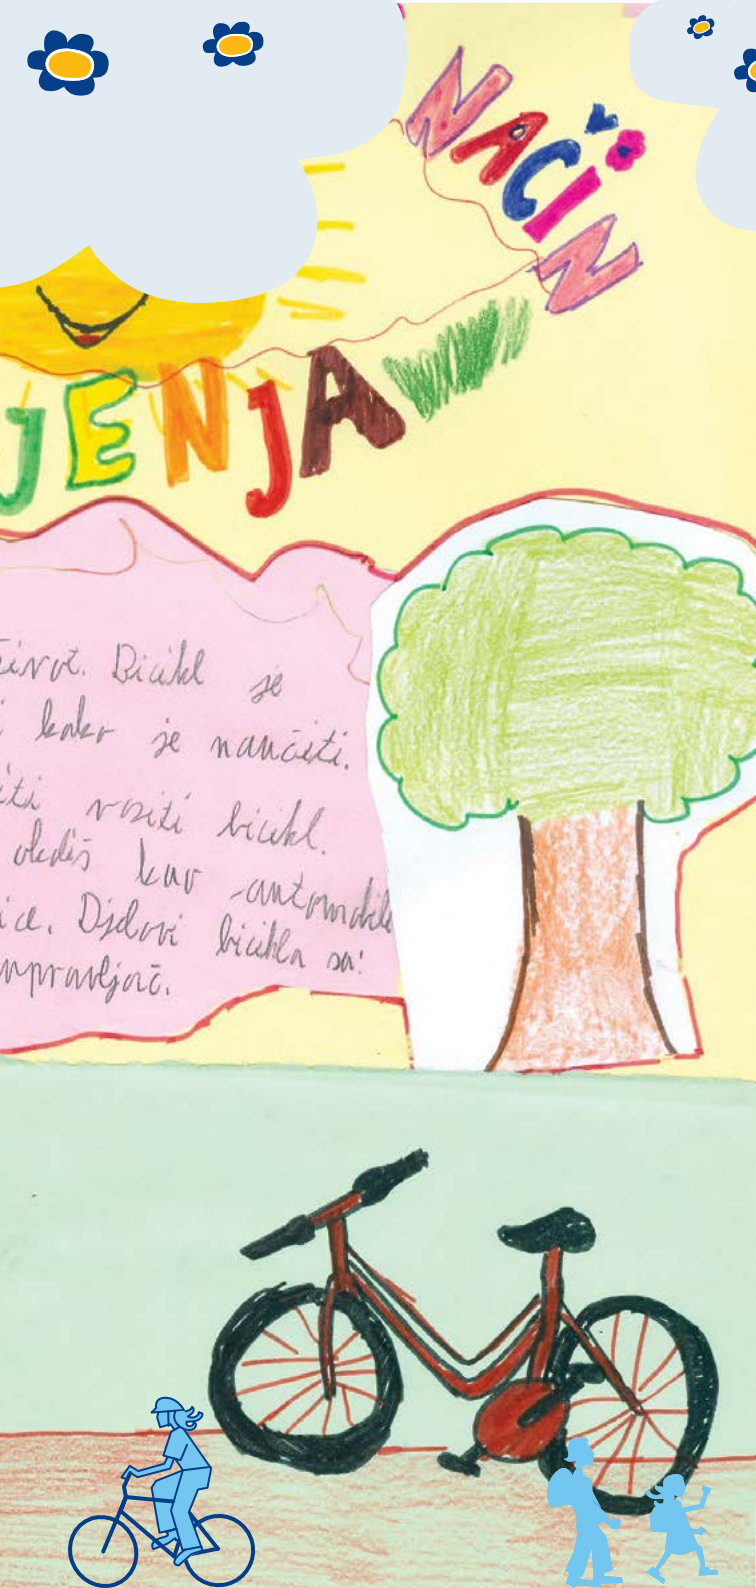 NAČIN
JENJA
život. Bicikl je
i kako je naučiti.
iti voziti bicikl.
kao automobile
Djelovi bicikla su:
upravljač.